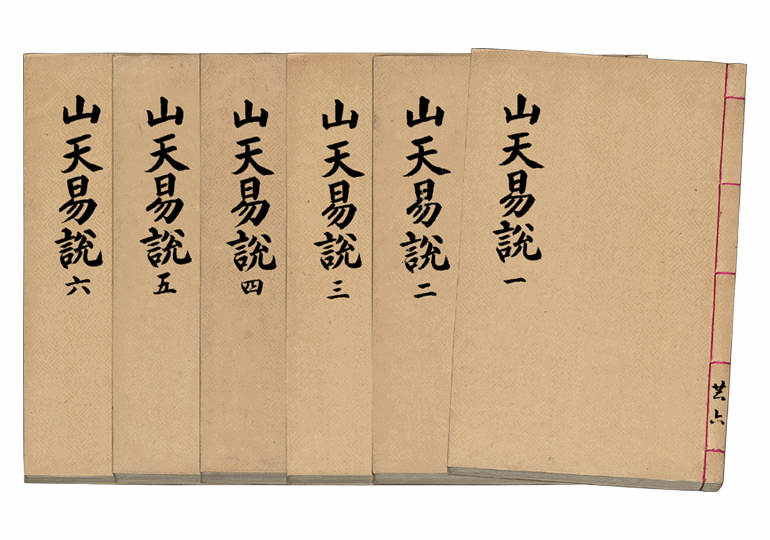 山天易說一
共六
山天易說二
山天易說三
山天易說四
山天易說五
山天易說六